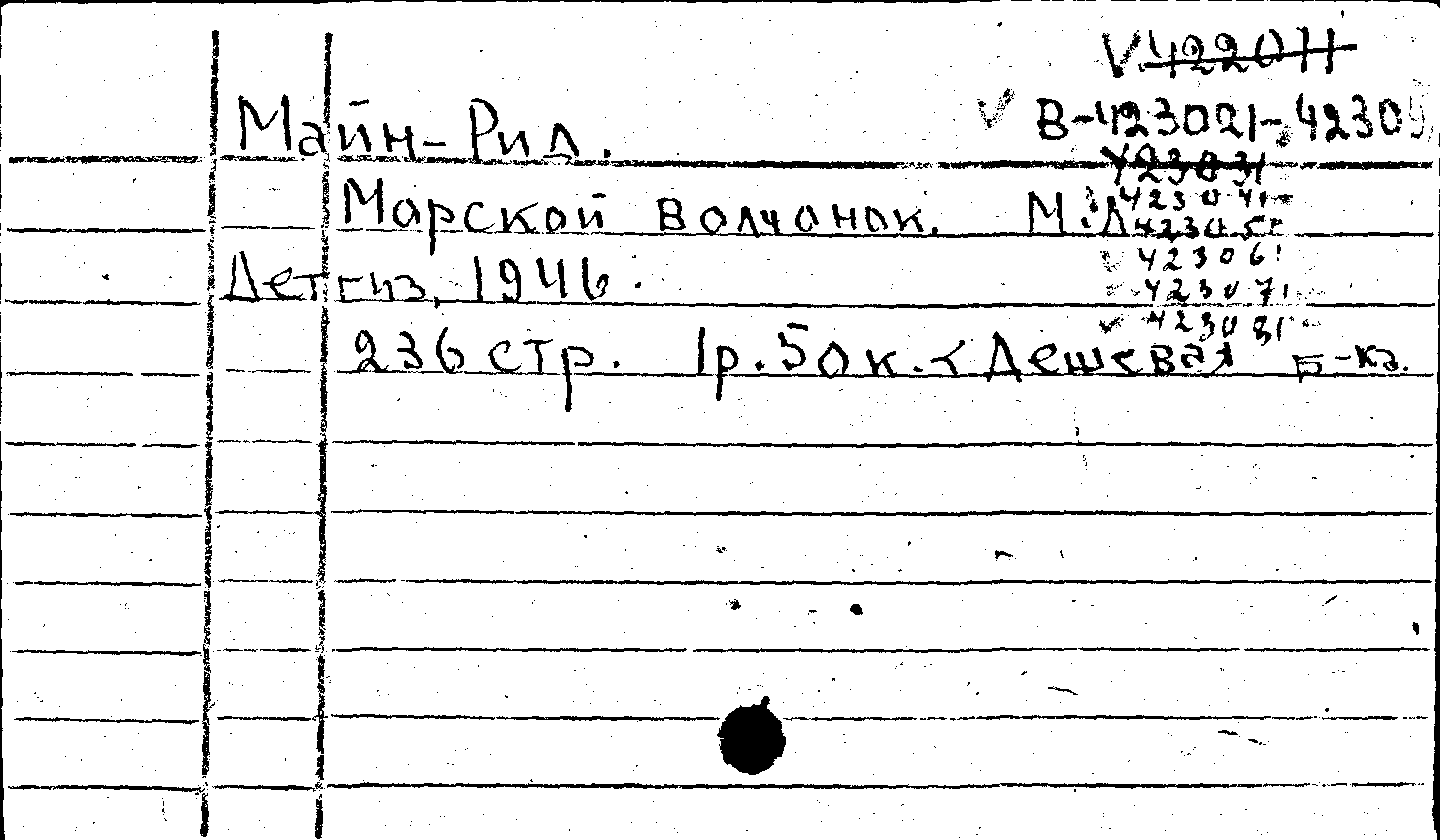 V. 422011
Майн-Рид.
В-423021-42309
423031
Морской волчонок. М.Л
423041-
423051-
423061
Детгиз, 1946.
423071
423081-
236 стр. 1р.50к. < Дешевая б-ка.